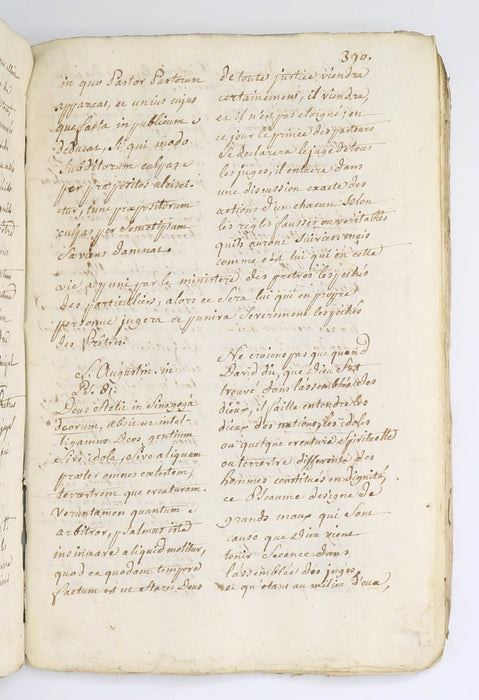 390.
in quo Pastor Pastorum
appareat, et unius cujus
que facta in publicum
deducat, Si qui modo
Subditorum culpas
per præpositos ulcisci-
tur, tunc præpositorum
culpas per Semetipsum
Sæviens damnat.
de toute justice viendra
certainement, il viendra,
et il n'en pas éloigné, en
ce jour le prince des pasteurs
Se déclarera le juge de tous
les juges, il entrera dans
une discussion exacte des
actions d'un chacun Selon
les regles fausses ou veritables
qu'ils auront Suivies, mais
comme c'est lui qui en cette
vie a puni par le ministere des pretres les pechés
des particuliers, alors ce Sera lui qui en propre
personne jugera et punira Severement les pechés
des Prêtres.
S. Augustin. in
Ps. 81.
Deus Stetit in Sinagoga
deorum, absit ut intel-
ligamus Deos gentium
Sive idola, Sive aliquam
præter omnes cœlestem,
terrestrem que creaturam.
Veruntamen quantum
arbitror, psalmus iste
insinuare aliquid molitur,
quod en quodam tempore
factum est ut Staret Deus
Ne croions pas que quand
David dit, que Dieu S'est
trouvé dans l'assemblée des
dieux, il faille entendre les
dieux des nations, les idoles
ou quelque creature Spirituelle
ou terrestre differente des
hommes constitués en dignité,
ce Pseaume designe de
grands maux qui Sont
cause que Dieu vient
tenir Seance dans
l'assemblée des juges,
et qu'etant au milieu d'eux,